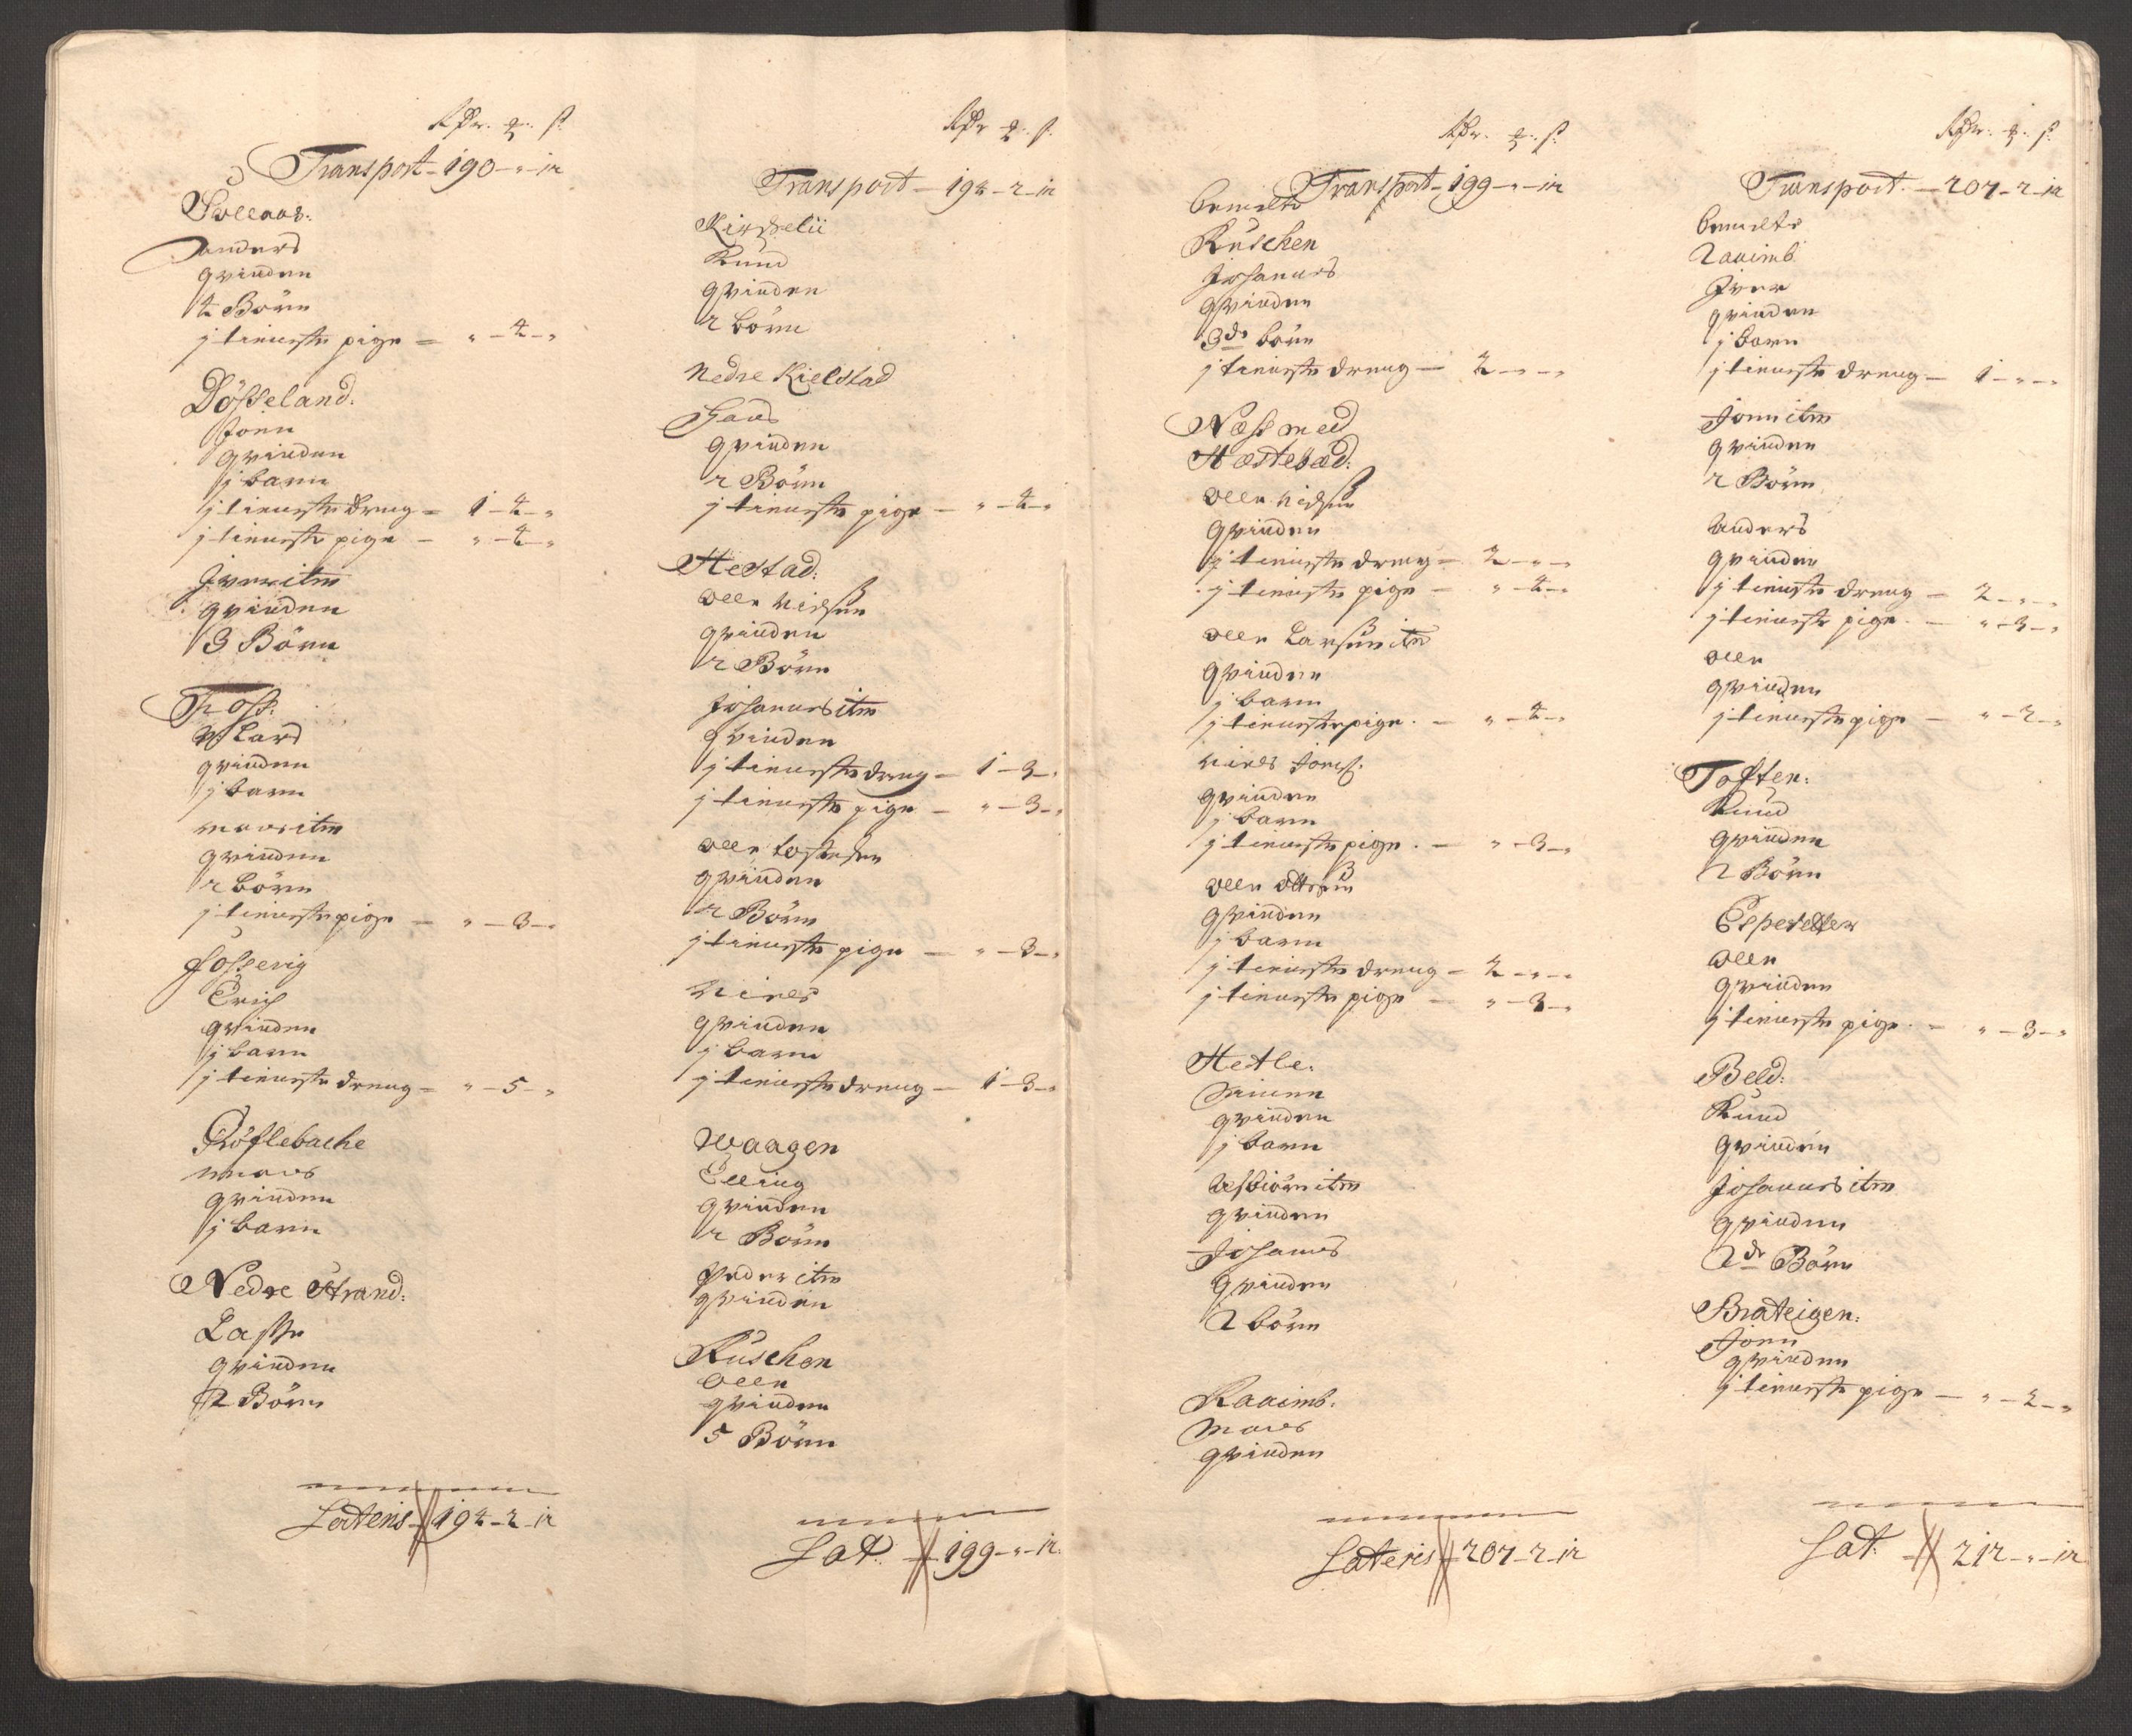 Rdr. ȝ. ß.
Transport - 190 - " - 12
Sollaas:
Anders
qvinden
4 Börn
j tieneste pige — " - 4 - "
Dösseland:
Joen
qvinden
j barn
j tieneste dreng — 1 - 4 - "
j tieneste pige — " - 4 - "
Iver itm
qvinden
3 Börn
Foss:
Lars
qvinden
j barn
Mons itm
qvinden
2 börn
j tieneste pige — " - 3 - "
Fossevig
Erich
qvinden
j barn
j tieneste dreng — " - 5 - "
Röflebache
Mons
qvinden
j barn
Nedre Strand:
Lasse
qvinden
2 Börn
Lateris 194 - 2 - 12
Rdr ȝ. ß.
Transport - 194 - 2 - 12
Kirchelii
Knud
qvinden
2 börn
Nedre Kielstad
Hans
qvinden
2 Börn
j tieneste pige — " - 4 - "
Hestad:
Olle Nielsen
qvinden
2 Börn
Johanes itm
qvinden
j tieneste dreng — 1 - 3 - "
j tieneste pige — " - 3 - "
Olle Tostesen
qvinden
2 Börn
j tieneste pige — " - 3 - "
Niels
qvinden
j barn
j tieneste dreng — 1 - 3 - "
Waagen
Elling
qvinden
2 Börn
Peder itm
qvinden
Kuschen
Olle
qvinden
5 Börn
Lat: 199 - " - 12
Rdr. ȝ. ß.
Transport - 199 - " - 12
bemelte
Kuschen
Johanes
qvinden
3de börn
j tieneste dreng — 2 - " - "
Næss med
Hæstebæd:
Olle Nielsen
qvinden
j tieneste dreng — 2 - " - "
j tieneste pige — " - 4 - "
Olle Larsen itm
qvinden
j barn
j tieneste pige. — " - 4 - "
Niels Jons:
qvinden
j barn
j tieneste pige. — " - 3 - "
Olle Ottesen
qvinden
j barn
j tieneste dreng — 2 - " - "
j tieneste pige — " - 3 - "
Hetle:
Simen
qvinden
j barn
Asbiörn itm
qvinden
Johanes
qvinden
2 börn
Raaimb.
Mons
qvinden
Lateris 207 - 2 - 12
Rdr: ȝ. ß.
Transport — 207 - 2 - 12
bemelte
Raaimb
Iver
qvinden
j barn
j tieneste dreng — 1 - " - "
Jonn itm
qvinden
2 Börn
Anders
qvinden
j tieneste dreng — 2 - " - "
j tieneste pige — " - 3 - "
Olle
qvinden
j tieneste pige — " - 2 - "
Toften:
Knud
qvinden
2 Börn
Espesetter
Olle
qvinden
j tieneste pige. — " - 3 - "
Beld:
Knud
qvinden
Johanes itm
qvinden
2de Börn
Brateigen:
Jonn
qvinden
j tieneste pige — " - 2 - "
Lat: 212 - " - 12